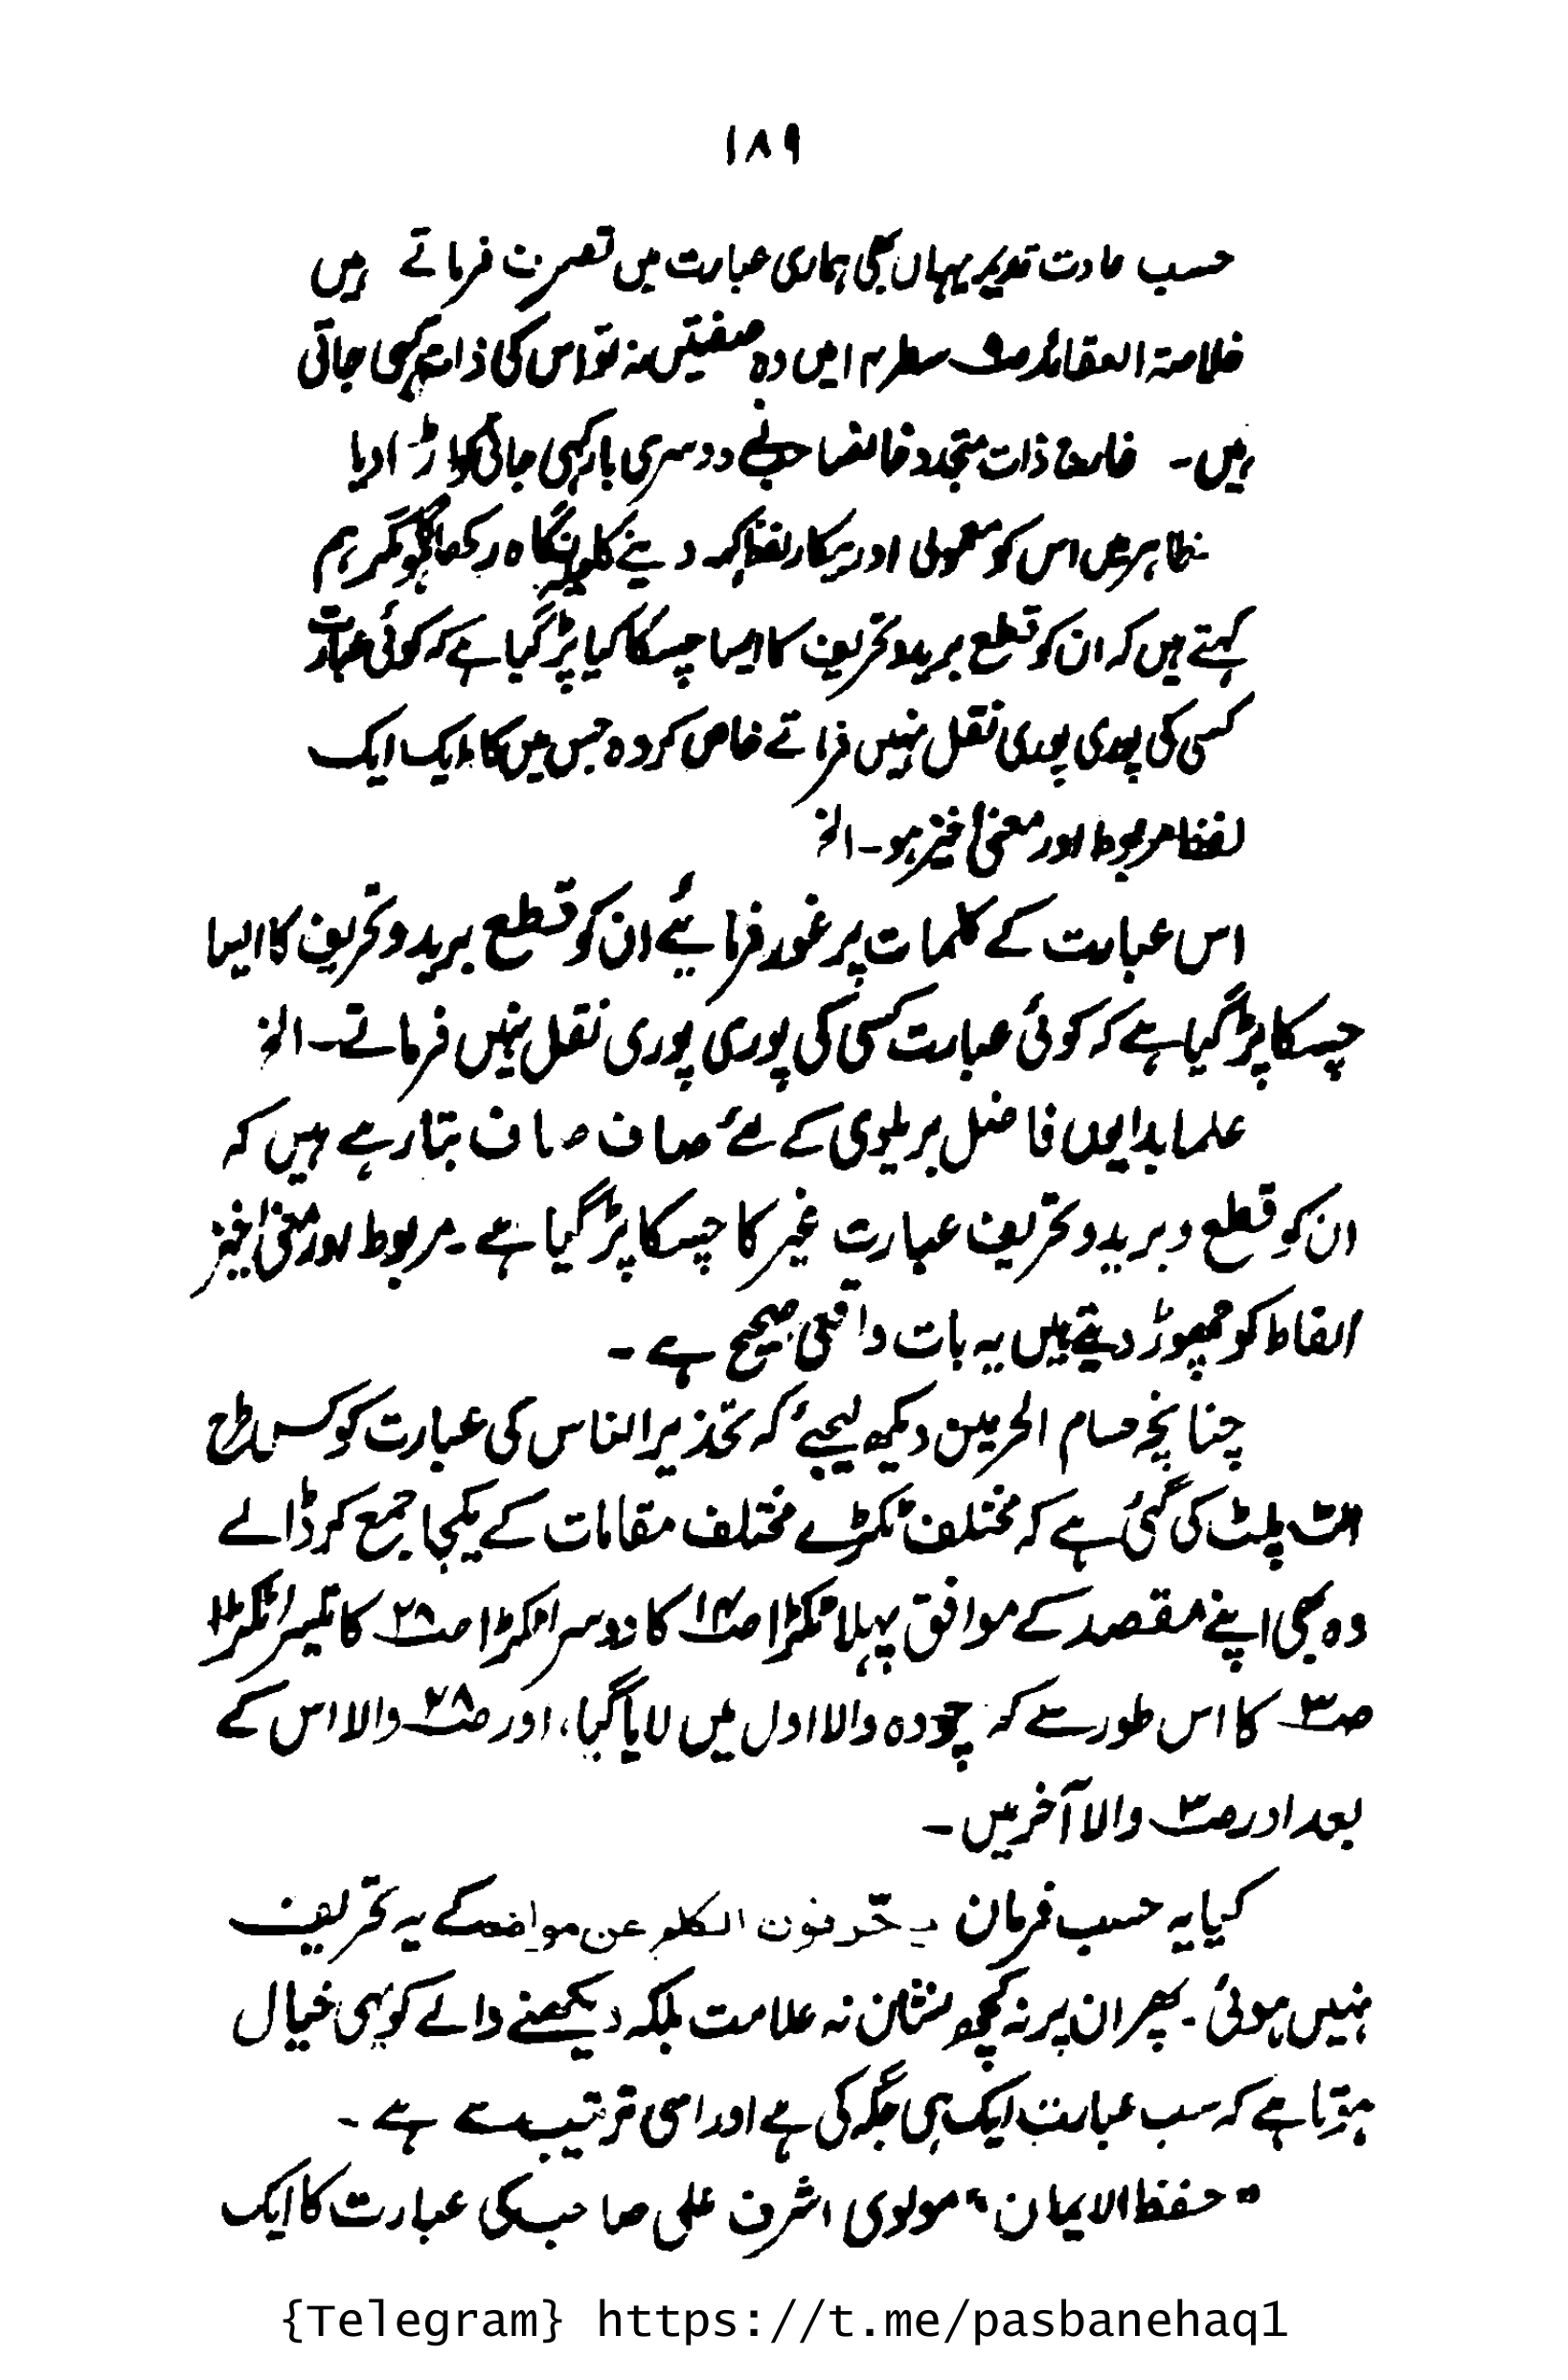 ۱۸۹
حسب عادت قدیم یہاں بھی ہماری عبارت میں تصرف فرماتے ہیں
خلاصۃ العقائد سطر ۱۴ میں وہ صفتیں نہ تو اس کی ذات کہی جاتی
ہیں۔ ذات متجدد دوسری بار کہی جاتی اڑا دیا
ظاہر میں اس کو معمولی اور بیکار لفظ کہہ دینے نگاہ رکھا مگر ہم
کہتے ہیں کہ ان کو قطع برید و تحریف کا ایسا چسکا کیا پڑ گیا ہے کہ کوئی عبارت
کسی کی پوری پوری نقل نہیں فرماتے خاص کر وہ جس میں کا ایک ایک
لفظ مربوط اور معنیٰ خیز ہو۔ الخ
اس عبارت کے کلمات پر غور فرمایئے ان کو قطع برید و تحریف کا ایسا
چسکا پڑ گیا ہے کہ کوئی عبارت کسی کی پوری پوری نقل نہیں فرماتے۔ الخ
علما بدایوں فاضل بریلوی کے لئے صاف صاف بتا رہے ہیں کہ
ان کو قطع و برید و تحریف عبارت غیر کا چسکا پڑ گیا ہے۔ مربوط اور معنیٰ خیز
الفاظ کو چھوڑ دیتے ہیں یہ بات واقعی صحیح ہے۔
چنانچہ حسام الحرمین دیکھ لیجئے کہ تحذیر الناس کی عبارت کو کس طرح
الٹ پلٹ کی گئی ہے کہ مختلف ٹکڑے مختلف مقامات کے یکجا جمع کر ڈالے
وہ بھی اپنے مقصد کے موافق پہلا ٹکڑا صـ۱۴ کا دوسرا ٹکڑا صـ۲۸ کا تیسرا ٹکڑا
صـ۳ کا اس طور سے کہ چودہ والا اول میں لایا گیا، اور صـ۲۸ والا اس کے
بعد اور صـ۳ والا آخر میں۔
کیا یہ حسب فرمان یحّرفون الکلم عن مواضعہ کے یہ تحریف
نہیں ہوئی۔ پھر ان پر نہ کچھ نشان نہ علامت بلکہ دیکھنے والے کو یہی خیال
ہوتا ہے کہ سب عبارت ایک ہی جگہ کی ہے اور اسی ترتیب سے ہے۔
"حفظ الایمان" مولوی اشرف علی صاحب کی عبارت کا ایک
{Telegram} https://t.me/pasbanehaq1